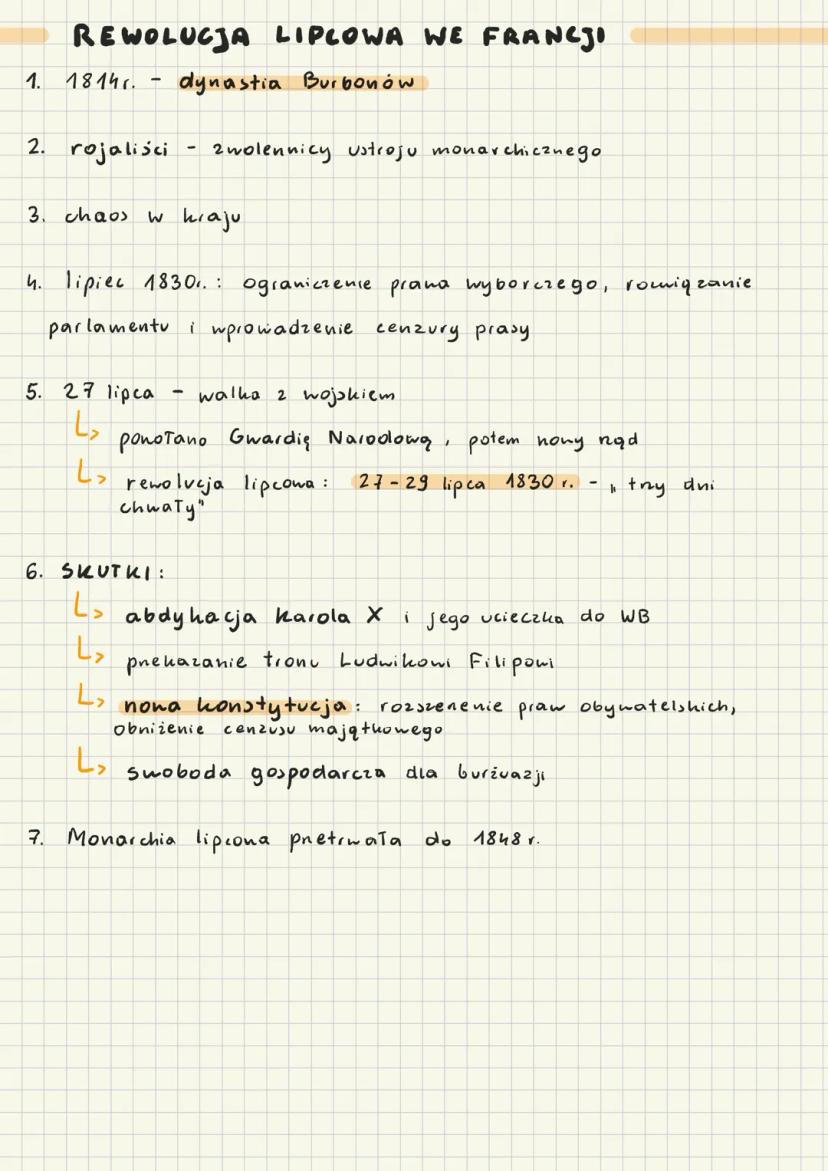 REWOLUCJA LIPCOWA WE FRANCJI
1. 1814r. - dynastia Burbonów
2. rojaliści - zwolennicy ustroju monarchicznego
3. chaos w kraju
4. lipiec 1830r.: ograniczenie prawa wyborczego, rozwiązanie
parlamentu i wprowadzenie cenzury prasy
5. 27 lipca - walka z wojskiem
↳ powołano Gwardię Narodową, potem nowy rząd
↳ rewolucja lipcowa: 27-29 lipca 1830 r. - „trzy dni
chwały"
6. SKUTKI:
↳ abdykacja Karola X i jego ucieczka do WB
↳ przekazanie tronu Ludwikowi Filipowi
↳ nowa konstytucja: rozszerzenie praw obywatelskich,
obniżenie cenzusu majątkowego
↳ swoboda gospodarcza dla burżuazji
7. Monarchia lipcowa przetrwała do 1848 r.